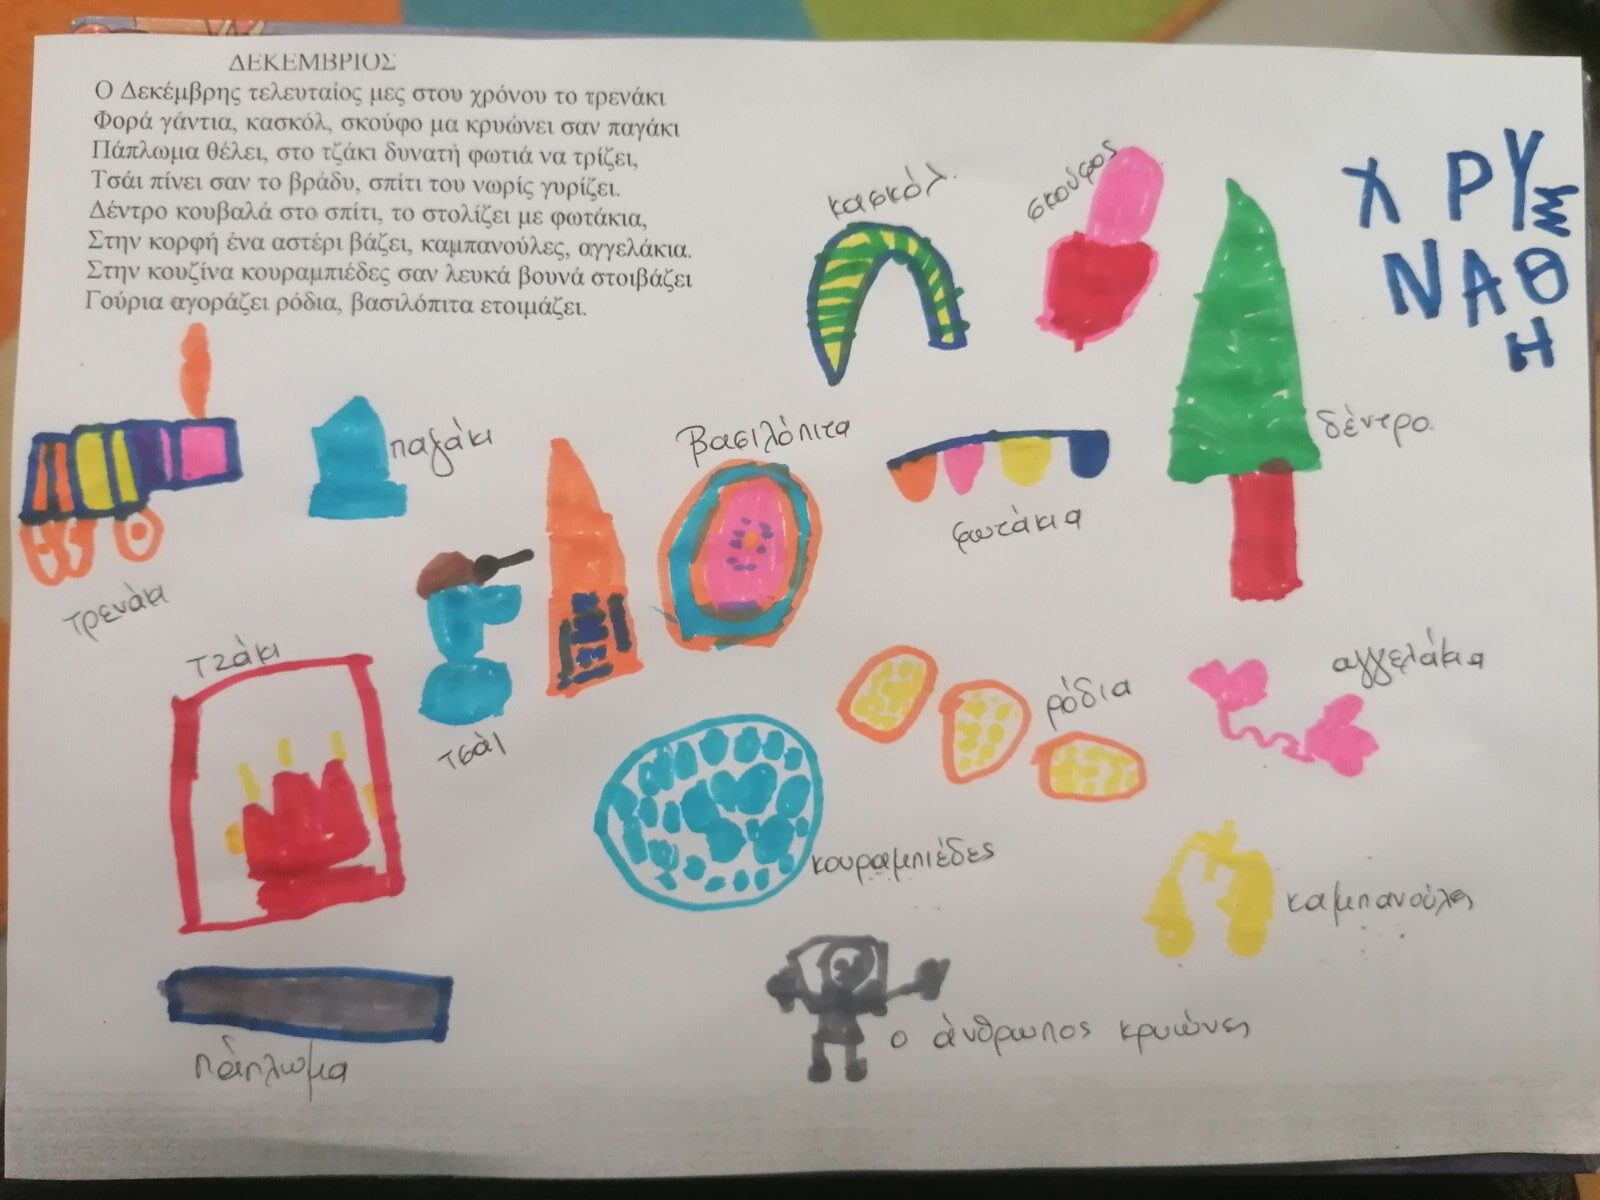 ΔΕΚΕΜΒΡΙΟΣ
Ο Δεκέμβρης τελευταίος μες στου χρόνου το τρενάκι
Φορά γάντια, κασκόλ, σκούφο μα κρυώνει σαν παγάκι
Πάπλωμα θέλει, στο τζάκι δυνατή φωτιά να τρίζει,
Τσάι πίνει σαν το βράδυ, σπίτι του νωρίς γυρίζει.
Δέντρο κουβαλά στο σπίτι, το στολίζει με φωτάκια,
Στην κορφή ένα αστέρι βάζει, καμπανούλες, αγγελάκια.
Στην κουζίνα κουραμπιέδες σαν λευκά βουνά στοιβάζει
Γούρια αγοράζει ρόδια, βασιλόπιτα ετοιμάζει.
ΧΡΥΣ
ΝΑΘ
Η
κασκόλ.
σκούφος
δέντρο.
παγάκι
βασιλόπιτα
φωτάκια
τρενάκι
τζάκι
τσάι
ρόδια
αγγελάκια
κουραμπιέδες
καμπανούλες
πάπλωμα
ο άνθρωπος κρυώνει